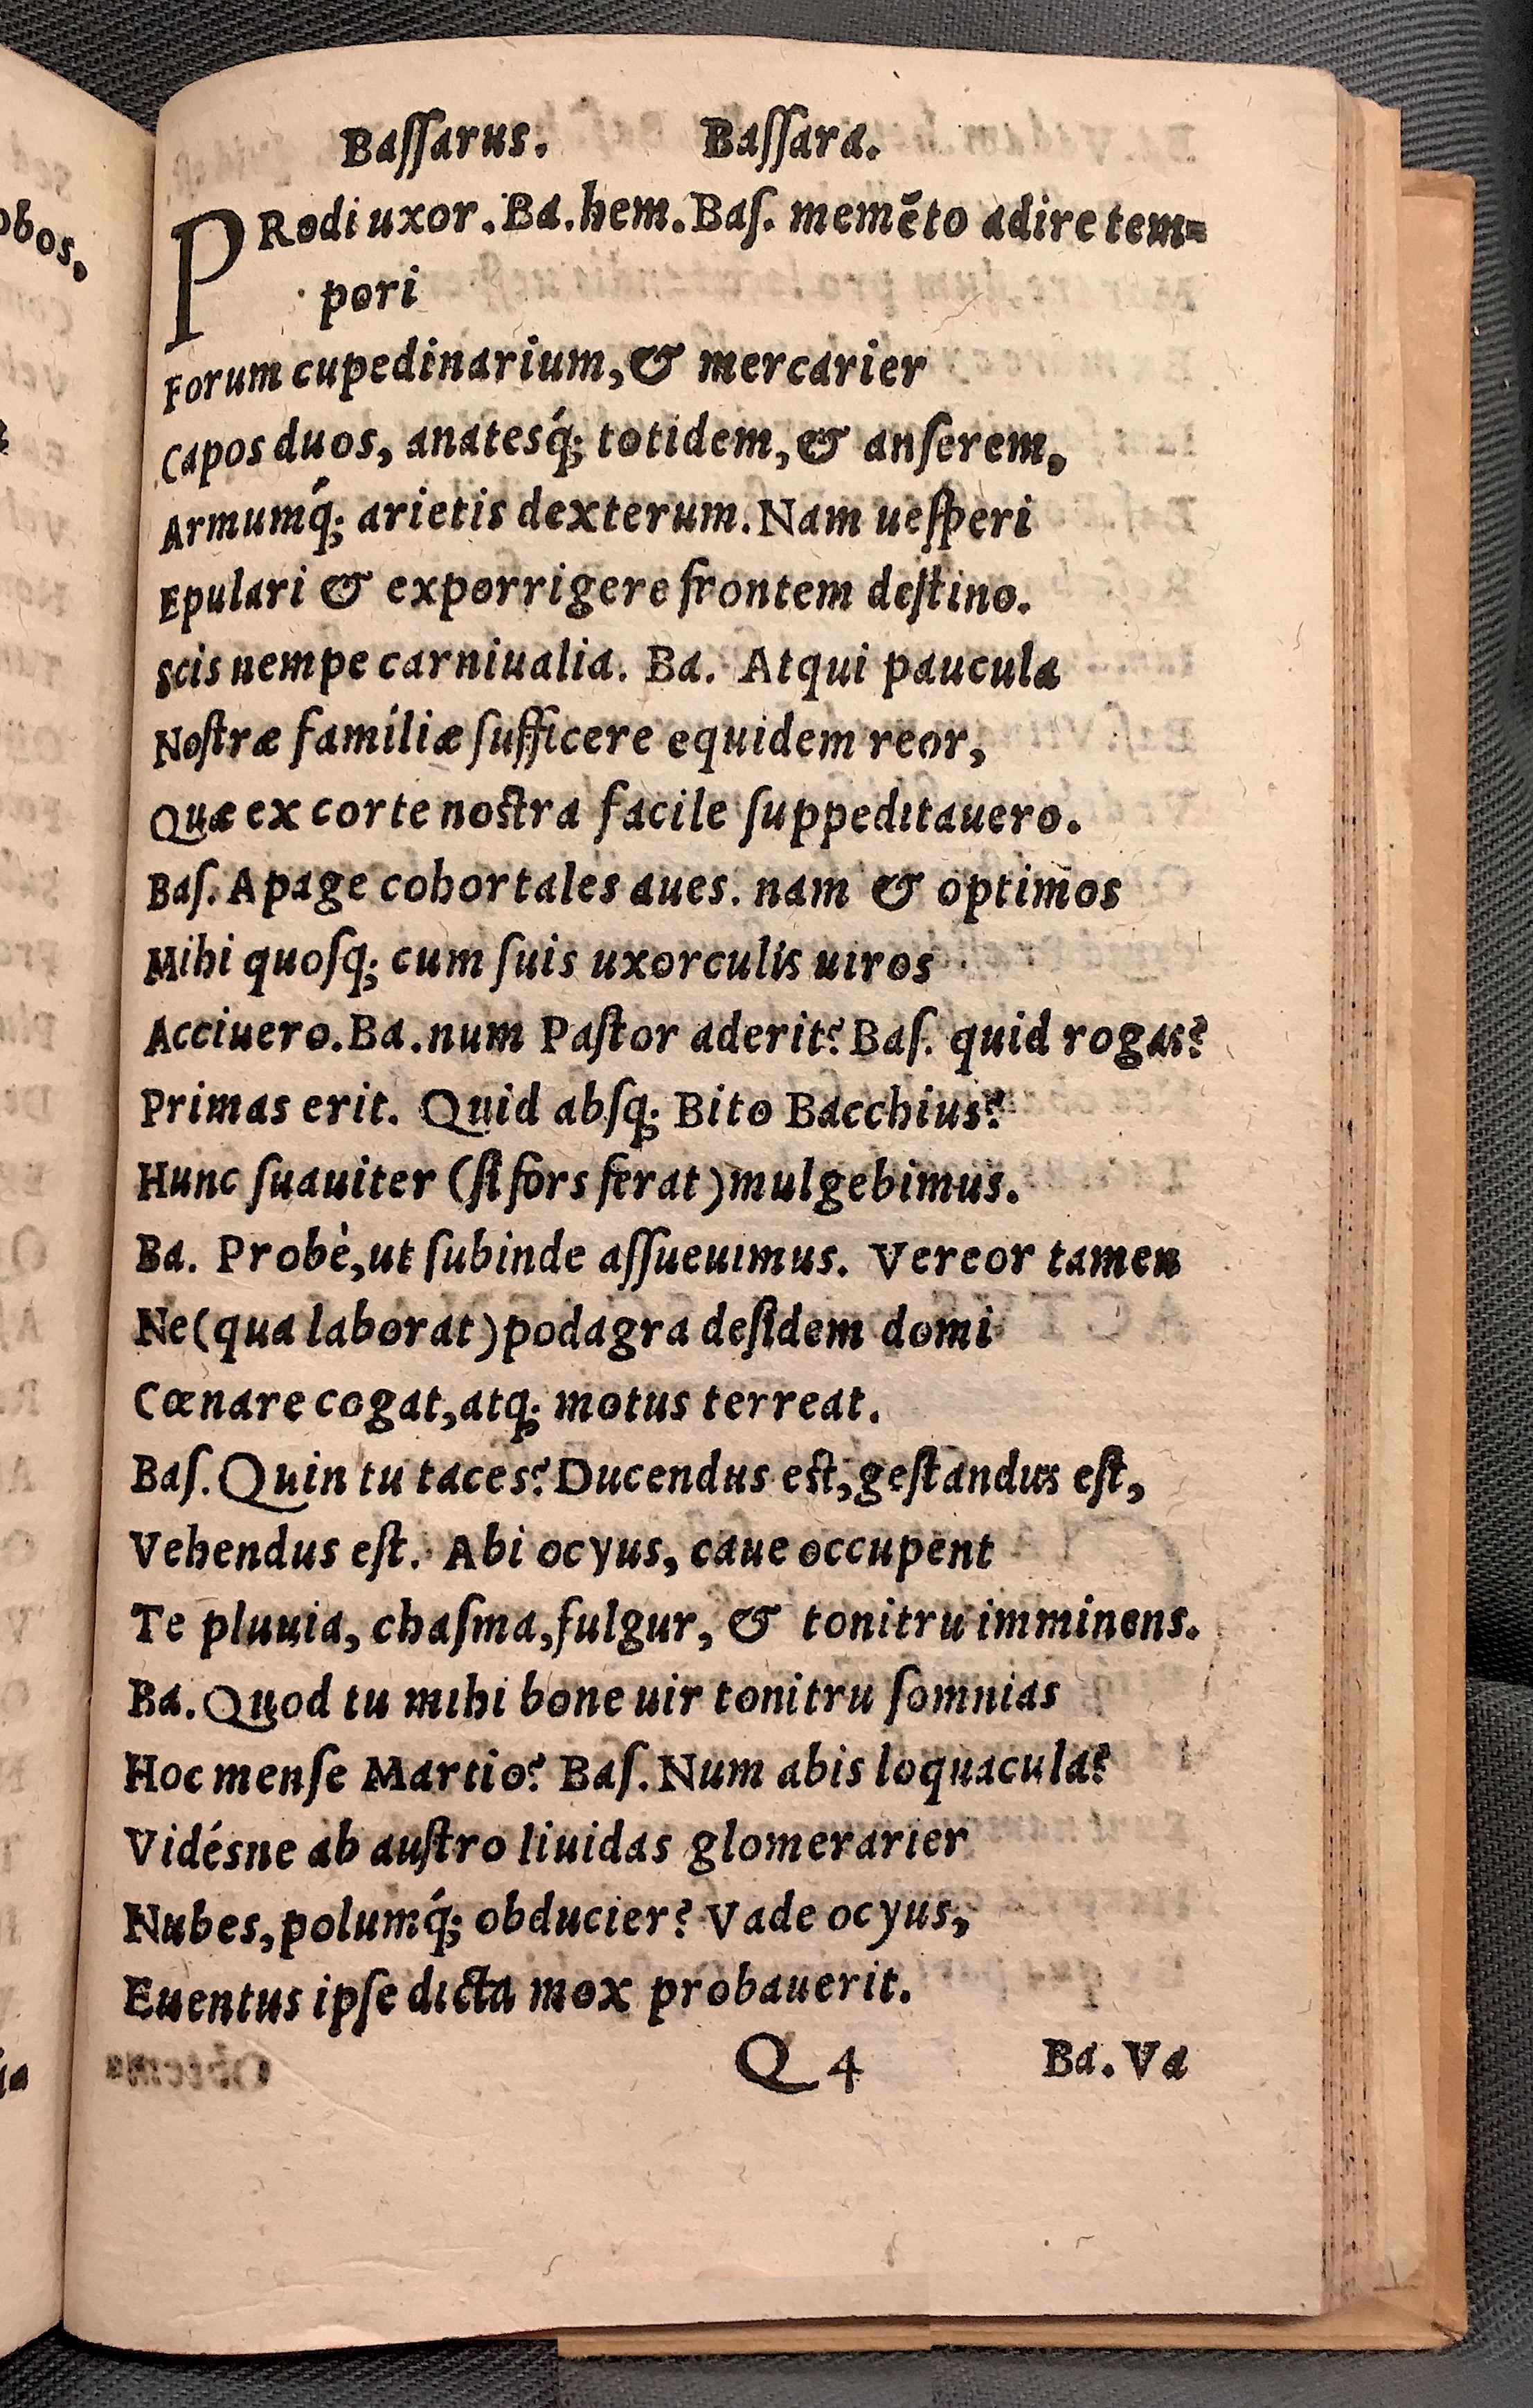 Baſſarus. Baſſara.
PRodi uxor. Ba. hem. Baſ. memēto adire tem=
pori
Forum cupedinarium, & mercarier
Capos duos, anatesq́; totidem, & anſerem,
Armumq́; arietis dexterum. Nam ueſperi
Epulari & exporrigere frontem deſtino.
Scis nempe carniualia. Ba. Atqui paucula
Noſtræ familiæ ſufficere equidem reor,
Quæ ex corte noſtra facile ſuppeditauero.
Baſ. Apage cohortales aues. nam & optimos
Mihi quoſq; cum ſuis uxorculis uiros
Acciuero. Ba. num Paſtor aderit? Baſ. quid rogas?
Primas erit. Quid abſq; Bito Bacchius?
Hunc ſuauiter (ſi fors ferat) mulgebimus.
Ba. Probè, ut ſubinde aſſueuimus. Vereor tamen
Ne (qua laborat) podagra deſidem domi
Cœnare cogat, atq; motus terreat.
Baſ. Quin tu taces? Ducendus eſt, geſtandus eſt,
Vehendus eſt. Abi ocyus, caue occupent
Te pluuia, chaſma, fulgur, & tonitru imminens.
Ba. Quod tu mihi bone uir tonitru ſomnias
Hoc menſe Martio? Baſ. Num abis loquacula?
Vidésne ab auſtro liuidas glomerarier
Nubes, polumq́; obducier? Vade ocyus,
Euentus ipſe dicta mox probauerit.
Q 4 Ba. Va
obos.